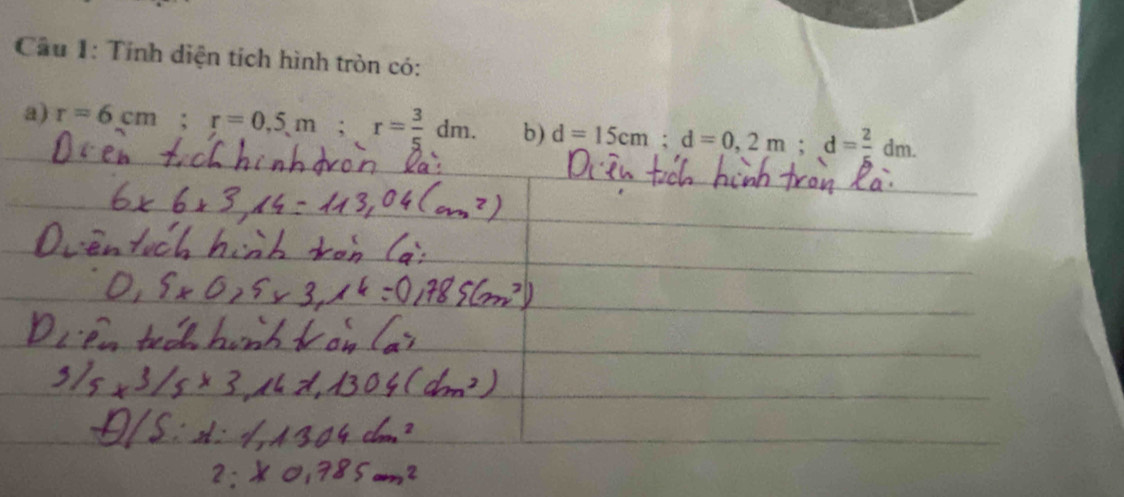 Câu 1: Tính diện tích hình tròn có:
a) r = 6 cm ; r = 0,5 m ; r = 3/5 dm. b) d = 15cm ; d = 0, 2 m ; d = 2/5 dm.
Diện tích hình tròn là:
6 x 6 x 3,14 = 113,04 (cm²)
Diện tích hình tròn là:
0,5 x 0,5 x 3,14 = 0,785 (m²)
Diện tích hình tròn là
3/5 x 3/5 x 3,14 = 1,1304 (dm²)
Đ/S: 1: 1,1304 dm²
2: 0,785 m²
Diện tích hình tròn là: